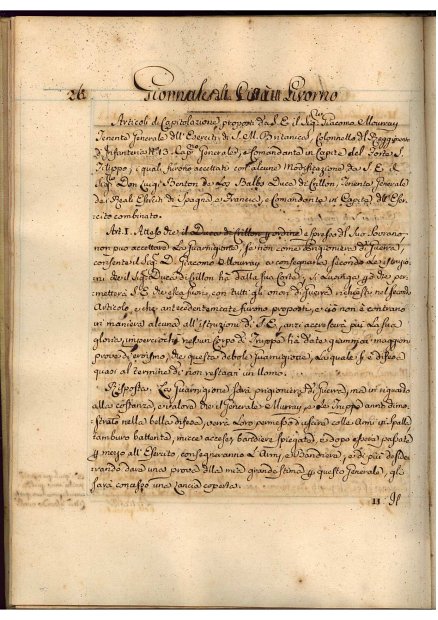 26
Giornale di Livorno
Articoli di Capitolazione proposti da S. E. il Sigr. Giacomo Mourray
Tenente Generale dell'Eserciti di S. M. Britanica, Colonnello del Reggimento
d'Infanteria N° 13. Capn. Generale, e Comandante in Capite del Forte S.
Filippo; i quali furono accettati con alcune Modificazione da S. E. il
Sigr. Don Luigi Benton de Los Balbos Duca de Crillon, Tenente Generale
de Reali Eserciti di Spagna, e Francia, e Comandante in Capite dell'Eser
cito combinato.
Art. I. Atteso che il Duca de Crillon ha ordine espresso del suo Sovrano
non può accettare la Guarnigione se non come Prigioniera di Guerra,
consente il Sigr. D. Giacomo Mourray a consegnarla secondo le istruzio
ni che il Sigr. Duca de Crillon ha dalla sua Corte, si lusinga però che per
metterà S. E. che esca fuori con tutti gli onori di Guerra richiesti nel secondo
Articolo, e che antecedentemente furono proposti, e ciò non è contrario
in maniera alcuna all'istruzioni di S. E., anzi accrescerà più la sua
gloria, imperciochè nessun Corpo di Truppa ha date giammai maggiori
prove d'eroismo che questa debole Guarnigione, la quale si è difesa
quasi al termine di non restarci un Uomo.
Risposta. La Guarnigione sarà prigioniera di Guerra, ma in riguardo
alla costanza, e valore che il Generale Murray, e le Truppe anno dimo
strato nella bella difesa, verrà Loro permesso d'uscire colle Armi in spalla
tamburo battente, micce accese, bandiere spiegate, e dopo essere passate
per mezzo all'Esercito, consegneranno l'Armi, e bandiere, e di più deside
rando dare una prova della mia grande stima per questo Generale, gli
sarà concesso una Lancia coperta.
11 Il